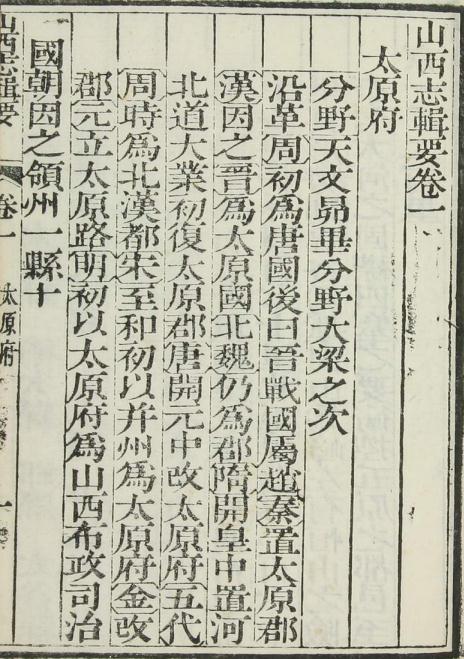 山西志輯要卷一
太原府
分野天文昴畢分野大梁之次
沿革周初爲唐國後曰晉戰國屬趙秦置太原郡
漢因之晉爲太原國北魏仍爲郡隋開皇中置河
北道大業初復太原郡唐開元中改太原府五代
周時爲北漢都宋至和初以并州爲太原府金改
郡元立太原路明初以太原府爲山西布政司治
國朝因之領州一縣十
山西志輯要
卷一
太原府
一